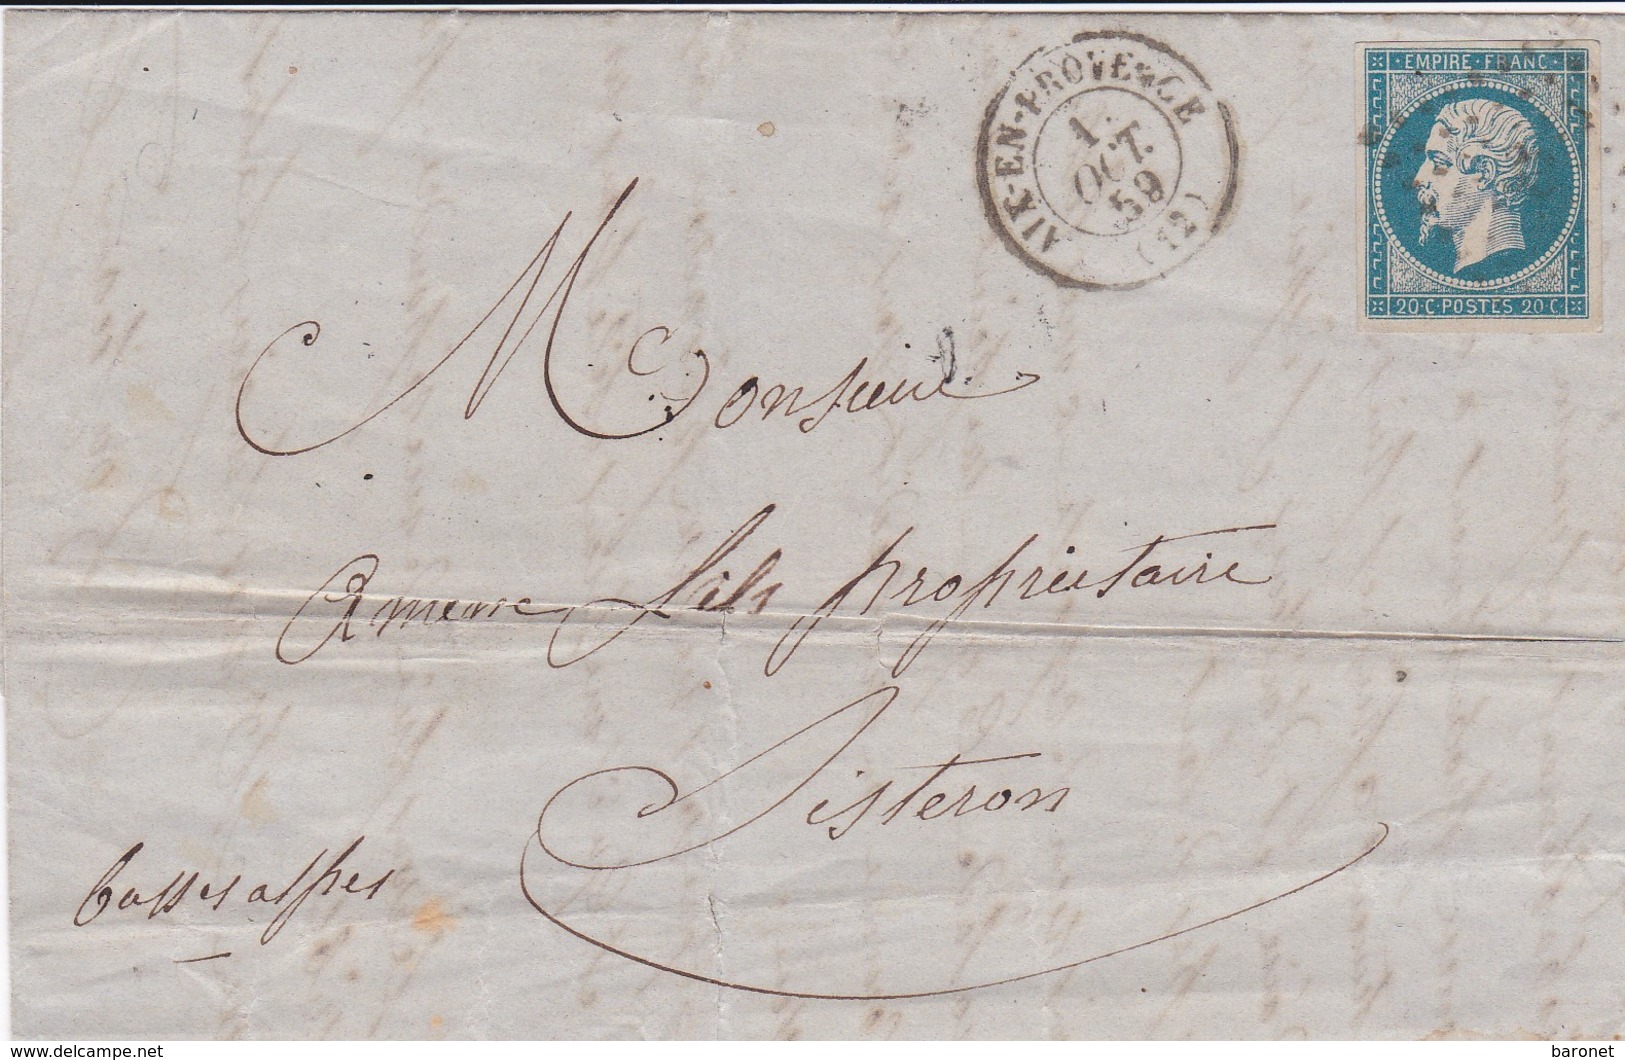 AIX-EN-PROVENCE
1
OCT.
59
(12)
EMPIRE·FRANC·
20·C·POSTES 20 C.
Monsieur
fils propriétaire
Sisteron
basses alpes
www.delcampe.net
baronet